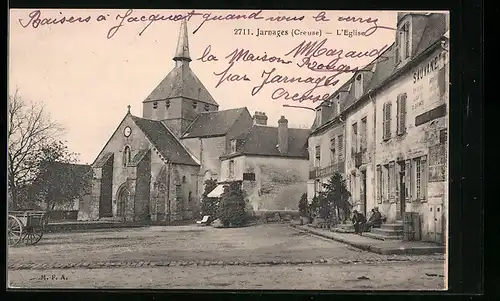 Baisers à Jacquot quand vous le verrez
2711. Jarnages (Creuse) — L'Eglise
la Maison
par Jarnages
Creuse
SAUVANET
M. F. A.